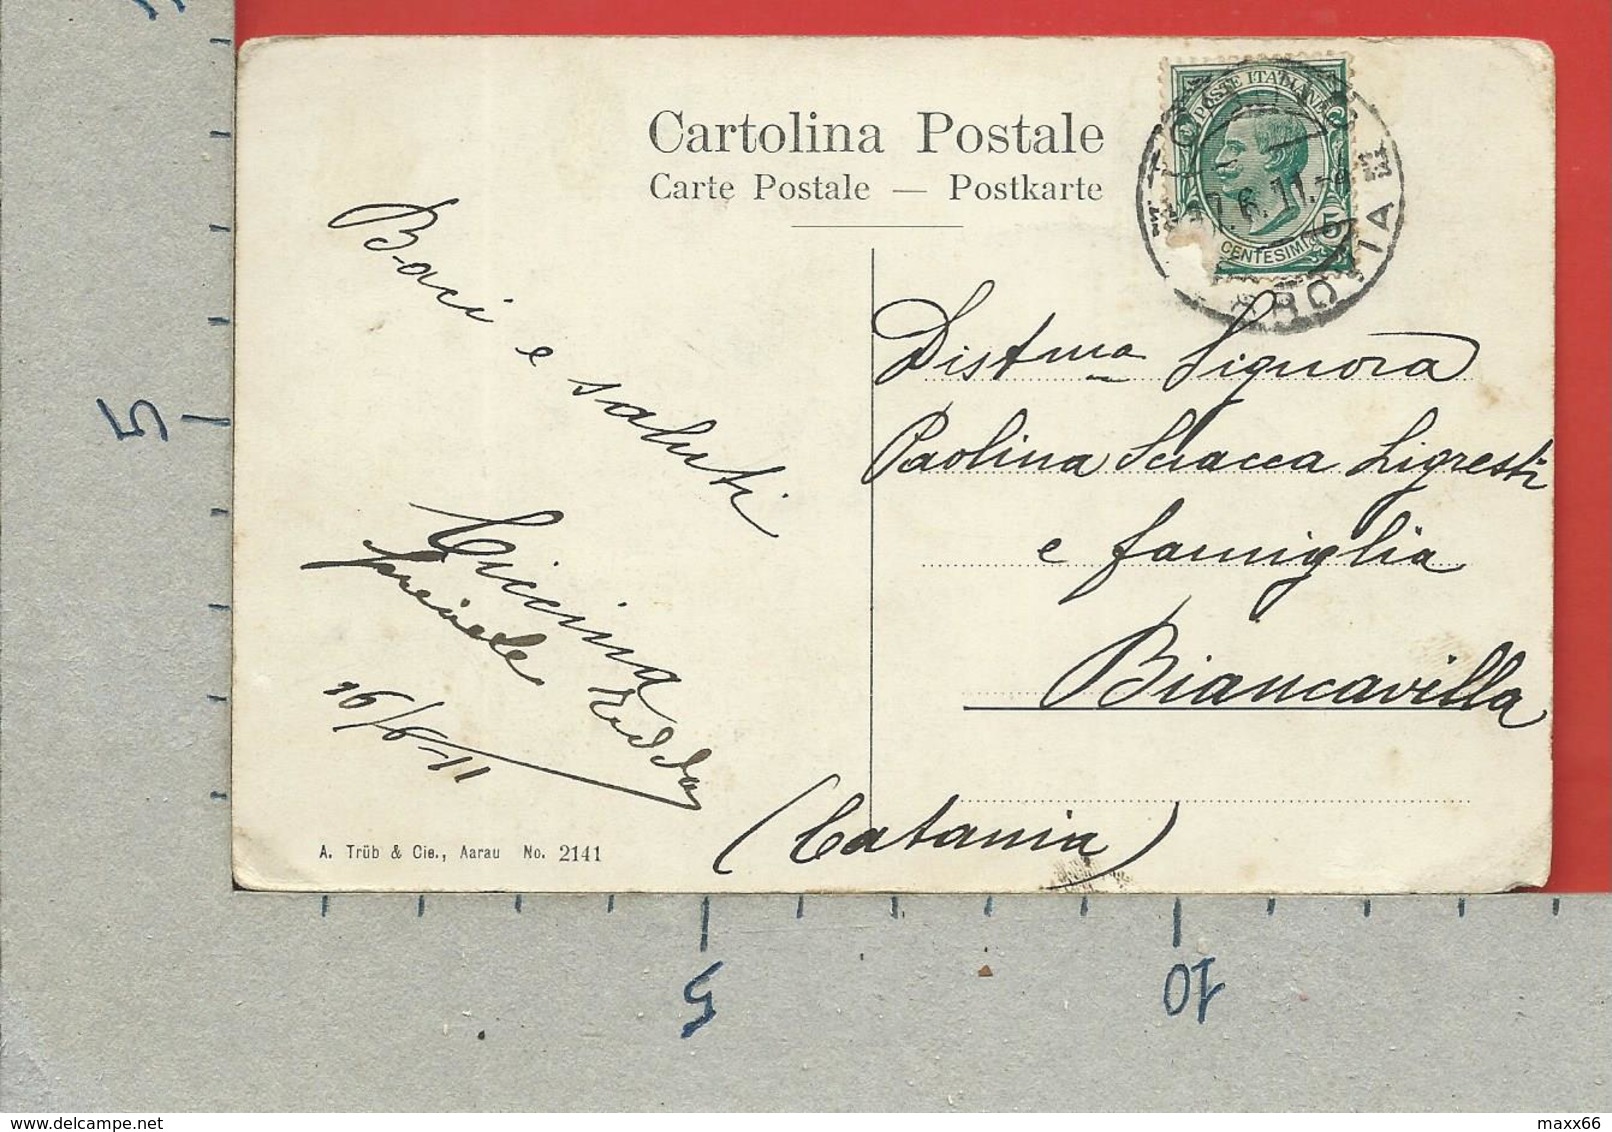 Cartolina Postale
Carte Postale — Postkarte
POSTE ITALIANE
CENTESIMI 5
Baci e saluti
Ciccina
16/6-11
Dist.ma Signora
Paolina Sciacca Ligresti
e famiglia
Biancavilla
(Catania)
A. Trüb & Cie., Aarau No. 2141
5
5
10
maxx66